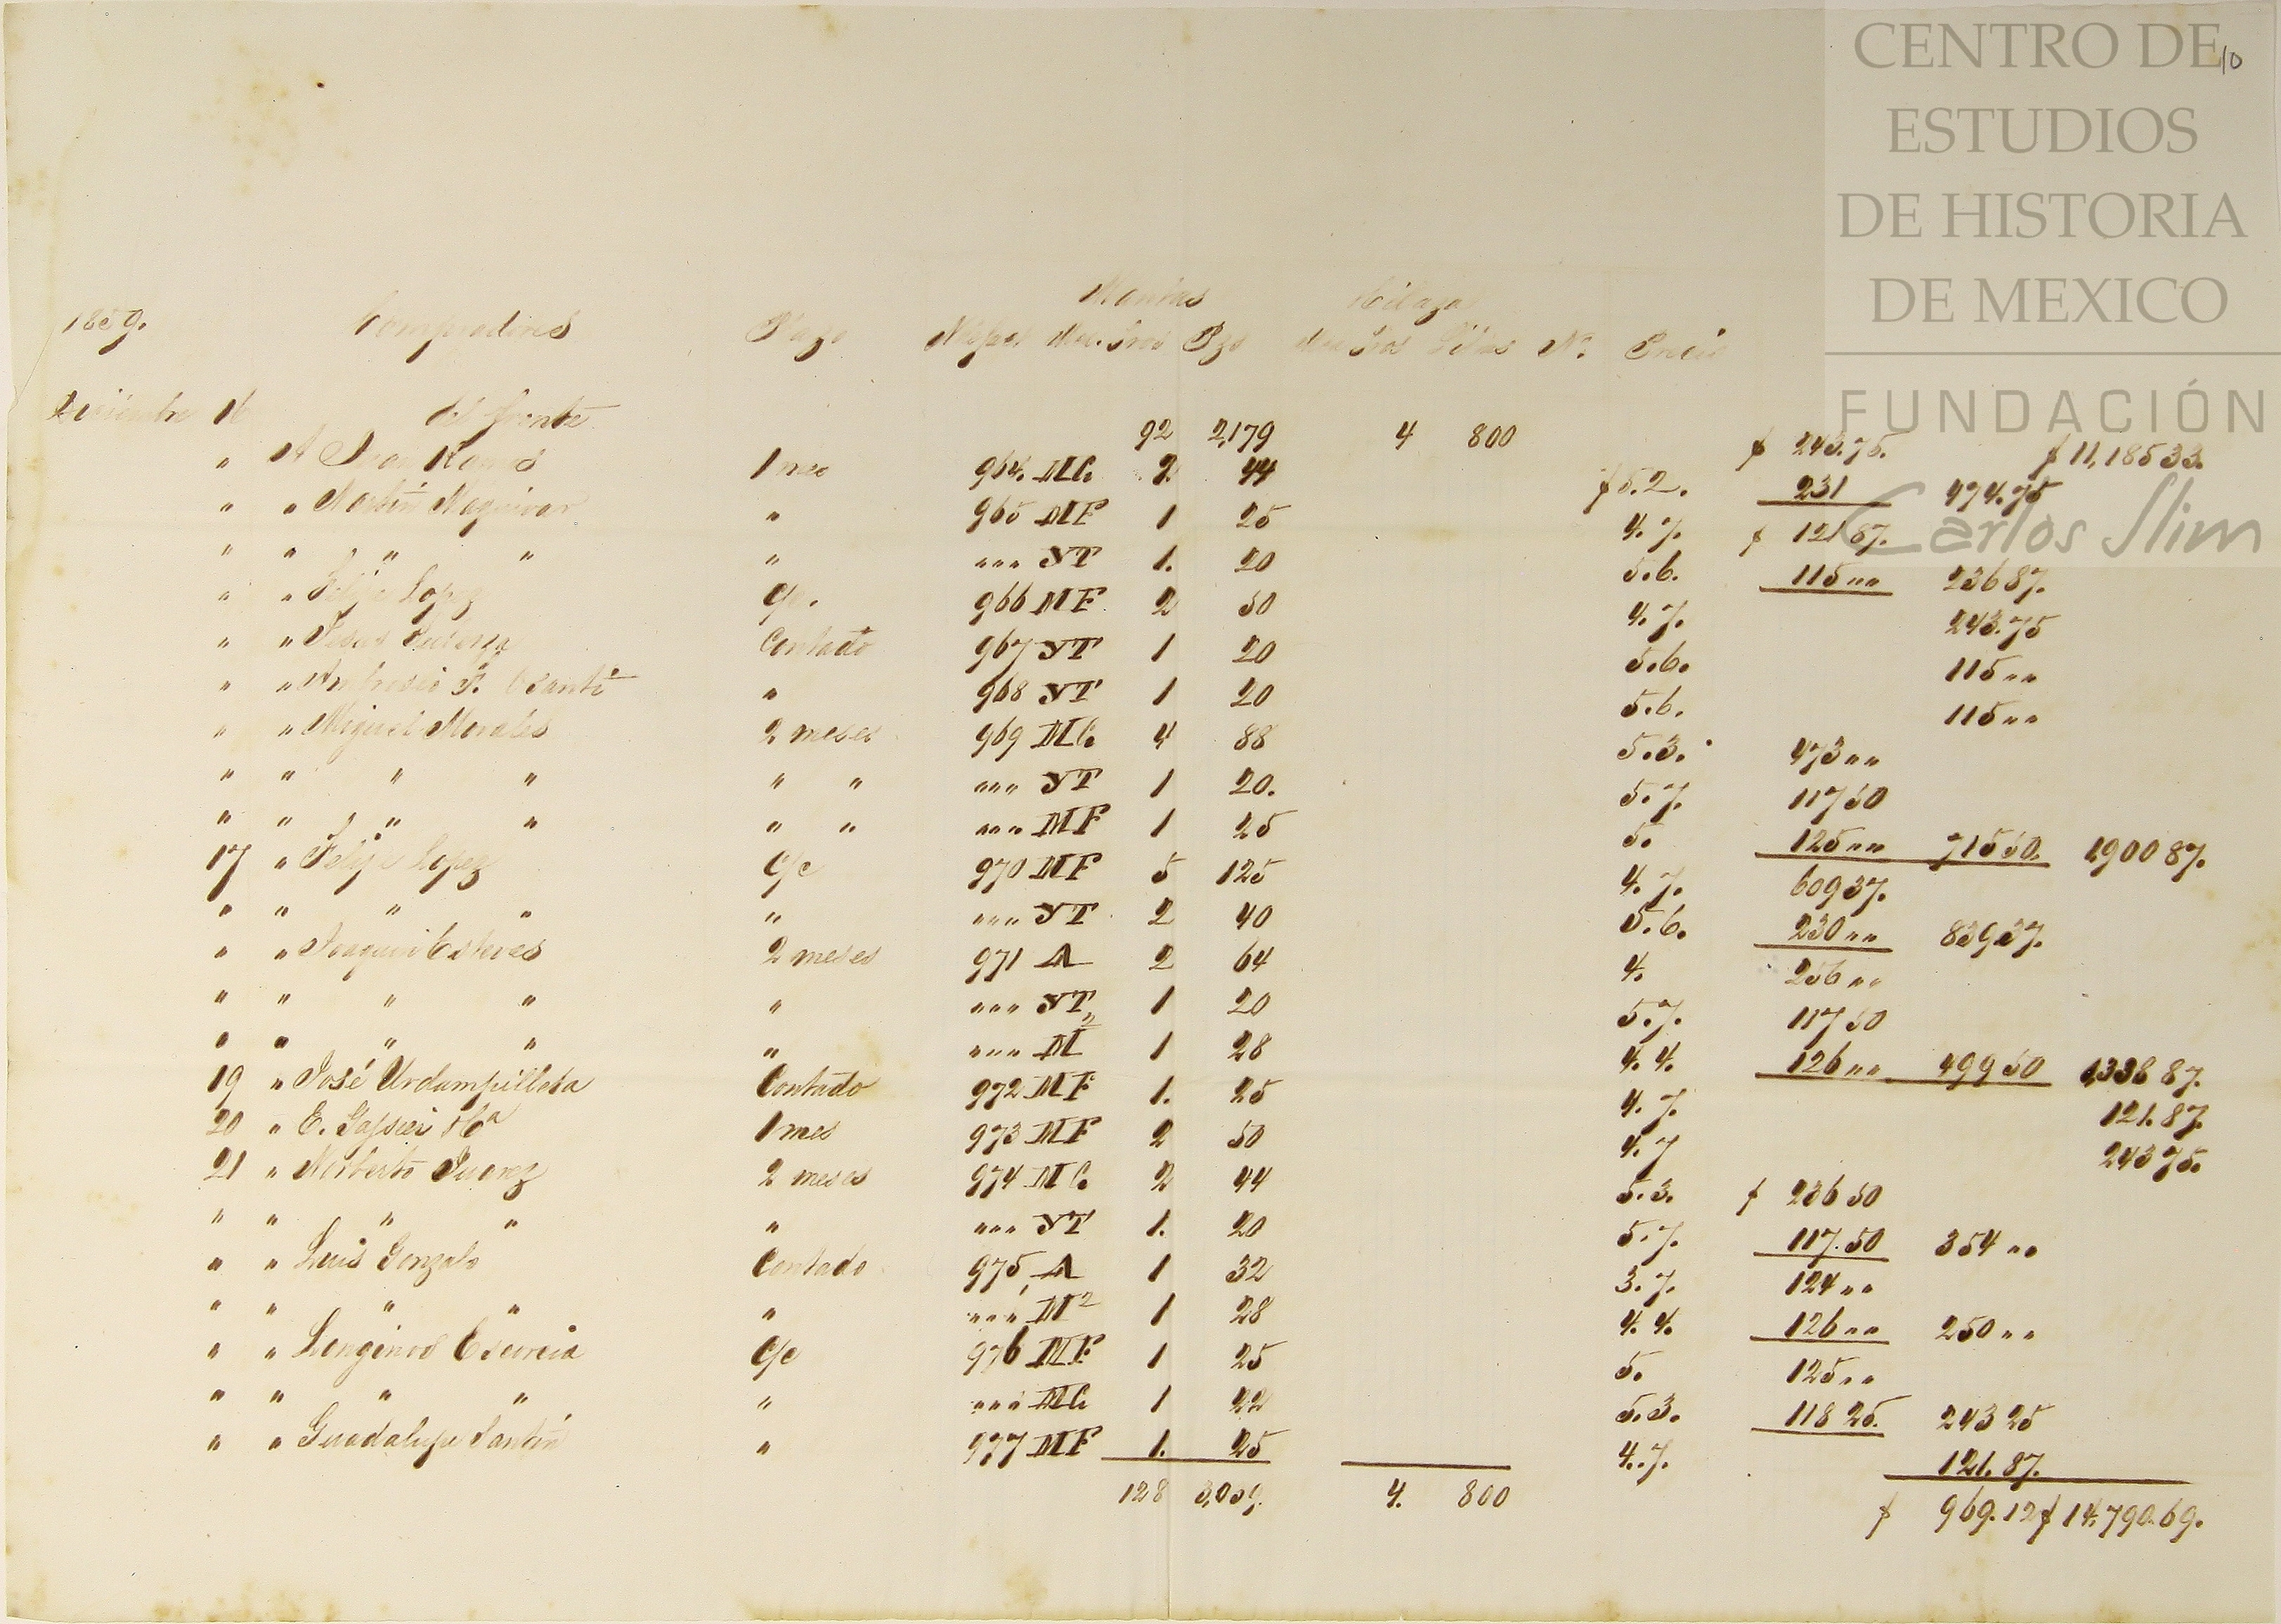 10
CENTRO DE
ESTUDIOS
DE HISTORIA
DE MEXICO
FUNDACIÓN
Carlos Slim
Mantas Hilaza
1859. Compradores Plazo Precio
Diciembre 16 del frente 92 2,179 4 800 $ 243.75. $ 11,185 33.
" A Juan Ramos 1 mes 964. MC. 2. 44 $ 5.2. 231 474.75
" " Martin " 965 MF 1 25 4. 7. $ 121 87.
" " " " " " " " YT 1. 20 5.6. 115 " " 236 87.
" " Felipe Lopez C/c. 966 MF 2 50 4. 7. 243.75
" " Jesus Contado 967 YT 1 20 5.6. 115 " "
" " Ambrosio F. " 968 YT 1 20 5.6. 115 " "
" " Miguel Morales 2 meses 969 MC. 4 88 5.3. 473 " "
" " " " " " " " " YT 1 20. 5. 7. 117 50
" " " " " " " " " MF 1 25 5. 125 " " 715 50. 1,900 87.
17 " Felipe Lopez C/c 970 MF 5 125 4. 7. 609 37.
" " " " " " " " YT 2 40 5. 6. 230 " " 839 37.
" " Joaquin Esteves 2 meses 971 A 2 64 4. 256 " "
" " " " " " " " YT 1 20 5. 7. 117 50
" " " " " " " " M 2 1 28 4. 4. 126 " " 499 50 1,338 87.
19 " José Urdampilleta Contado 972 MF 1. 25 4. 7. 121. 87.
20 " E. Ca 1 mes 973 MF 2 50 4. 7 243 75.
21 " Norberto Juarez 2 meses 974 MC. 2 44 5. 3. $ 236 50
" " " " " " " " YT 1. 20 5. 7. 117. 50 354 " "
" " Luis Gonzalo Contado 975 A 1 32 3. 7. 124 " "
" " " " " " " " M 2 1 28 4. 4. 126 " " 250 " "
" " Longinos Escorcia C/c 976 MF 1 25 5. 125 " "
" " " " " " " " MC 1 22 5. 3. 118 25. 243 25
" " Guadalupe Santin " 977 MF 1. 25 4. 7. 121. 87.
128 3,009. 4. 800 $ 969. 12 $ 14,790. 69.